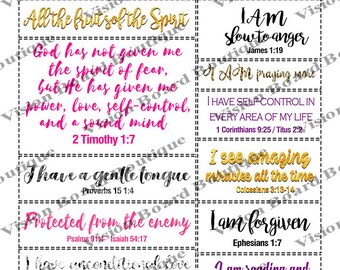 All the fruits of the Spirit
God has not given me
the spirit of fear,
but He has given me
power, love, self-control,
and a sound mind
2 Timothy 1:7
I have a gentle tongue
Proverbs 15 1:4
Protected from the enemy
Psalms 91:4 Isaiah 54:17
I have unconditional love
I AM
slow to anger
James 1:19
I AM praying more
I HAVE SELF-CONTROL IN
EVERY AREA OF MY LIFE
1 Corinthians 9:25 / Titus 2:2
I see amazing
miracles all the time
Colossians 3:13-14
I am forgiven
Ephesians 1:7
I am reading and
Vision Board Boutique